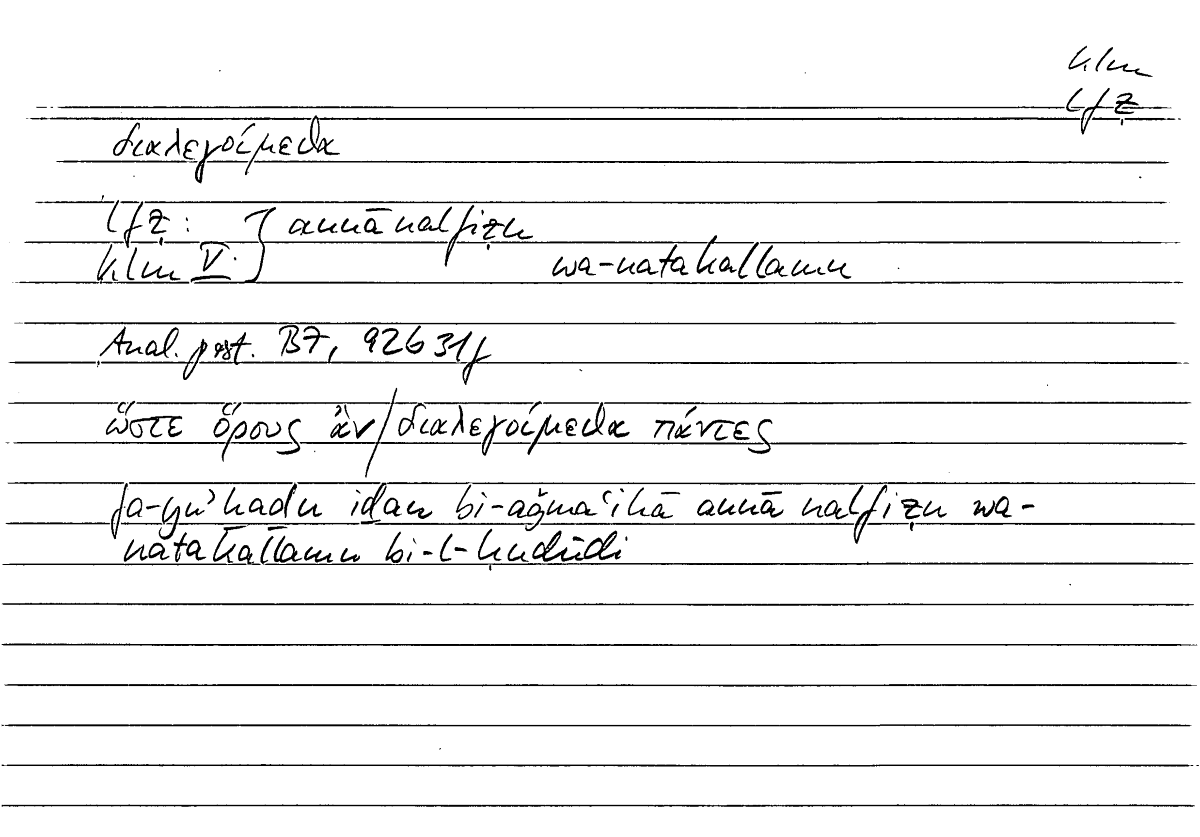 klm
lfẓ
διαλεγοίμεθα
lfẓ : } annā nalfiẓu
klm V. wa-natakallamu
Anal. post. B7, 92b31f
ὥστε ὅρους ἂν/διαλεγοίμεθα πάντες
fa-yuʾḫadu iḏan bi-aǧmaʿihā annā nalfiẓu wa-
natakallamu bi-l-ḥudūdi